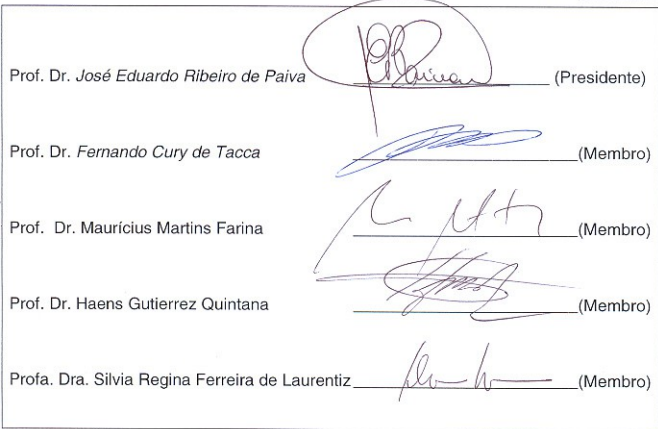 Prof. Dr. José Eduardo Ribeiro de Paiva (Presidente)
Prof. Dr. Fernando Cury de Tacca (Membro)
Prof. Dr. Maurícius Martins Farina (Membro)
Prof. Dr. Haens Gutierrez Quintana (Membro)
Profa. Dra. Silvia Regina Ferreira de Laurentiz (Membro)